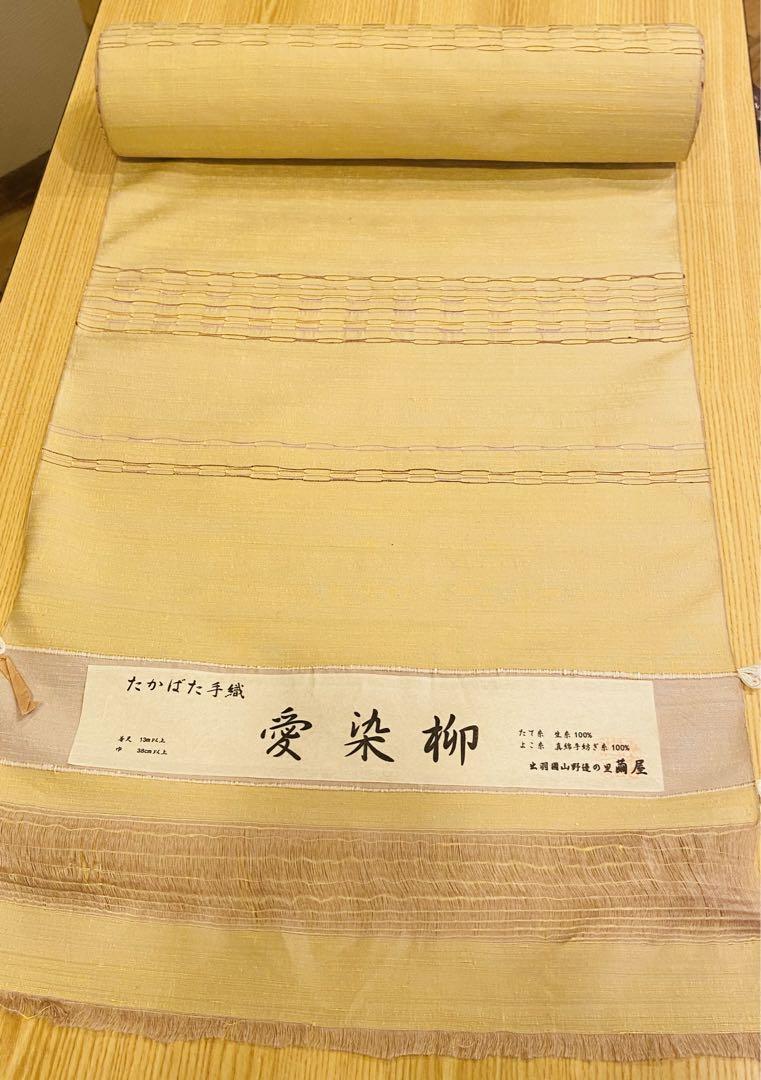 たかばた手織
愛染柳
着尺 13m以上
巾 38cm以上
たて糸 生糸100%
よこ糸 真綿手紡ぎ糸100%
出羽國山野邊の里 繭屋